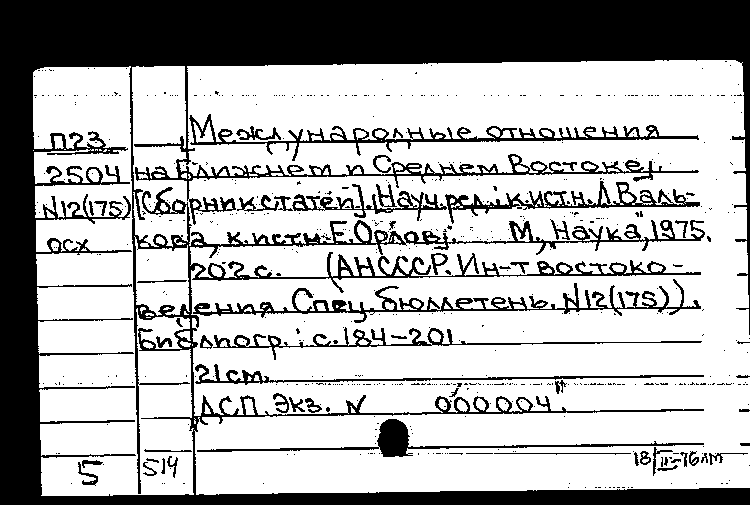 П23 Международные отношения
2504 на Ближнем и Среднем Востоке.
N12(175) [Сборник статей]. [Науч. ред.: к.ист.н. Л. Валь-
осх кова, к.истн. Е. Орлов]. М., "Наука", 1975.
202 с. (АН СССР. Ин-т востоко-
ведения. Спец. бюллетень. N12(175)).
Библиогр.: с. 184-201.
21 см.
"ДСП. Экз. N 000004".
5 514 18/III-76